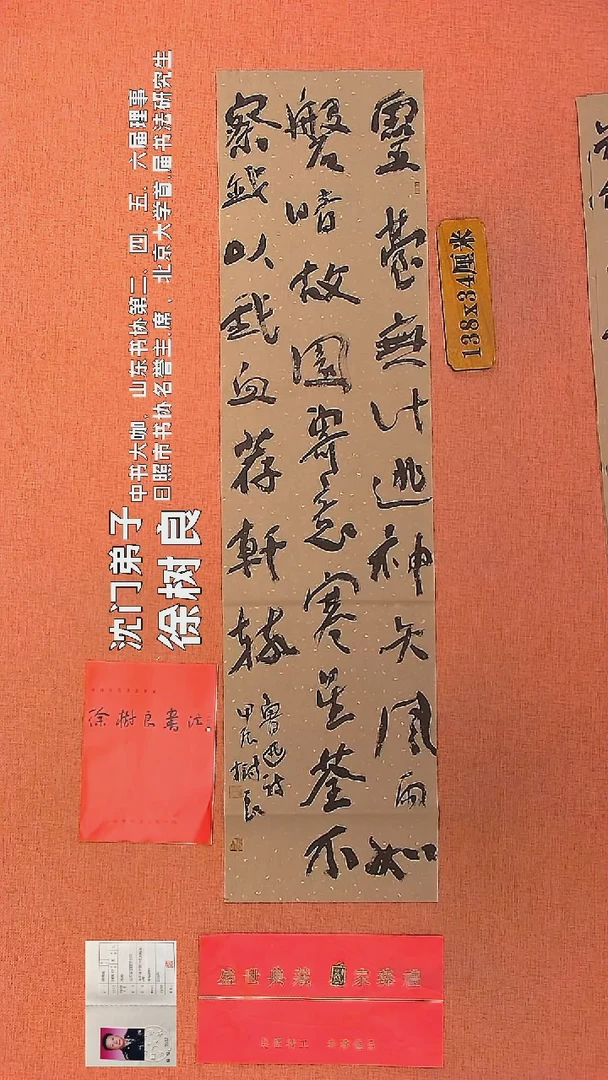 靈臺無計逃神矢風雨如
磐暗故園寄意寒星荃不
察我以我血荐軒轅
魯迅詩
甲辰樹良
138x34厘米
中书大咖、山东书协第二、四、五、六届理事
日照市书协名誉主席、北京大学首届书法研究生
沈门弟子
徐树良
徐樹良書法